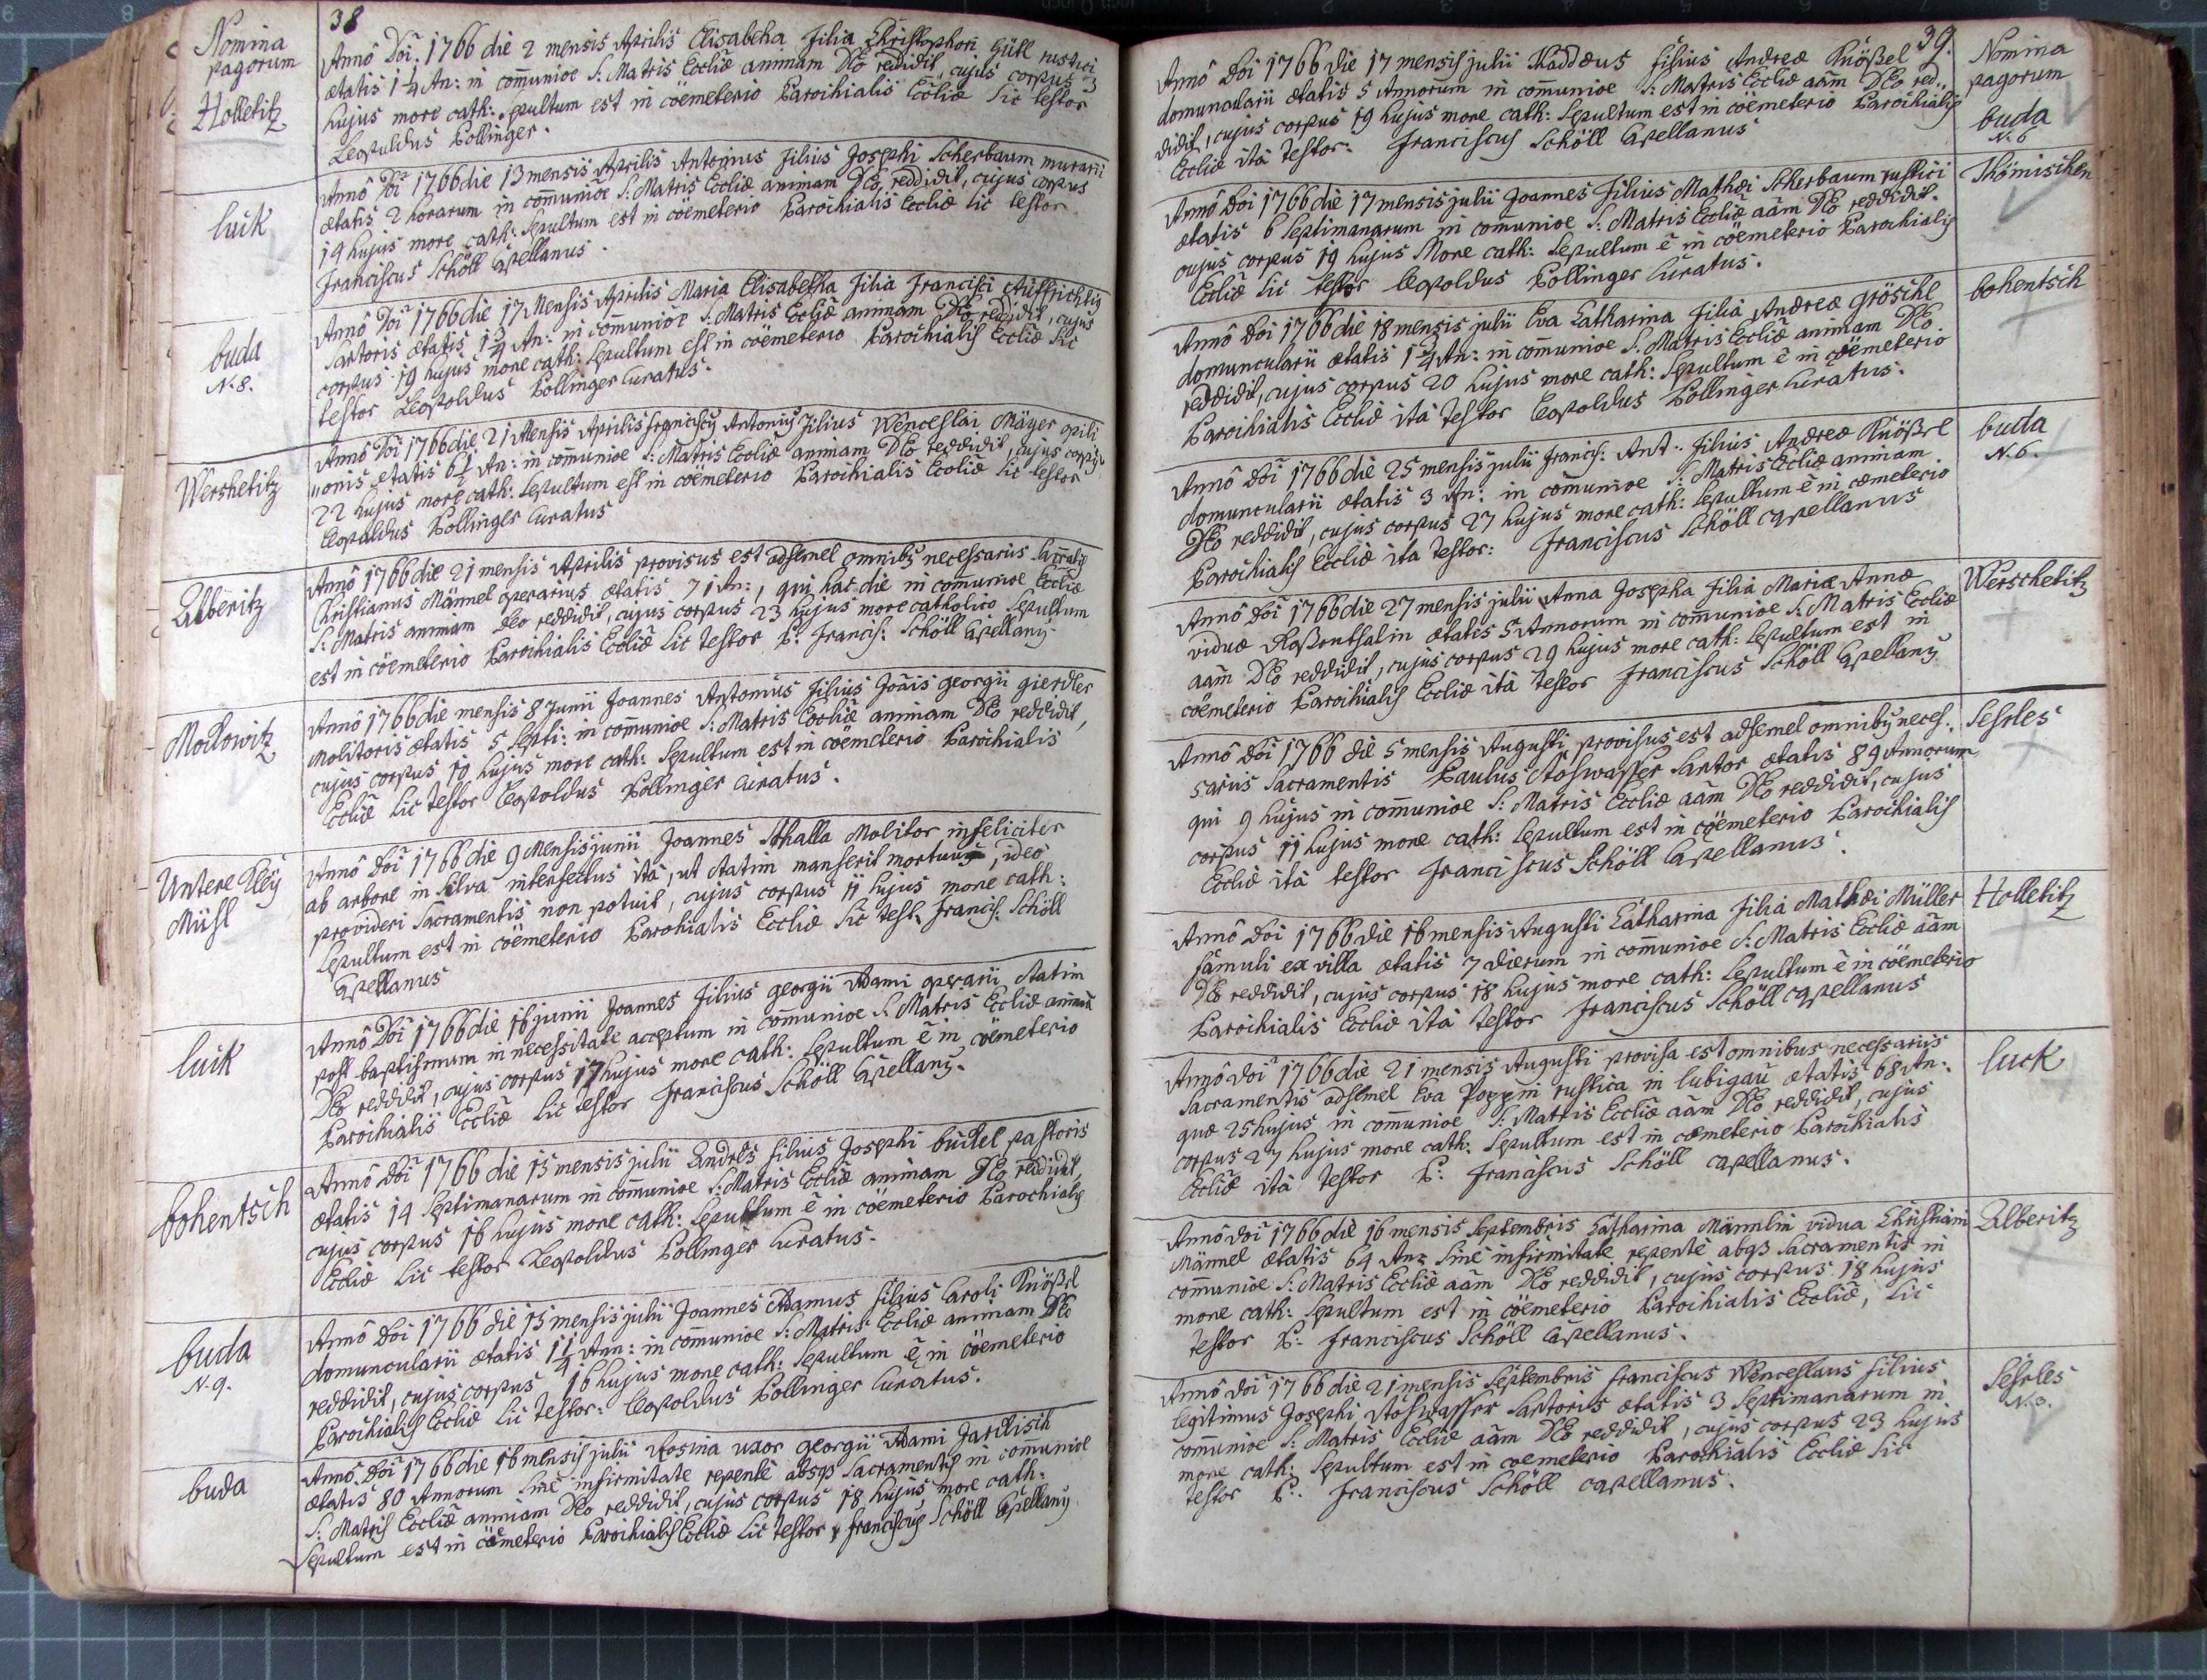 38
Nomina
pagorum
Holletitz
Annô Doi: 1766 die 2 mensis Aprilis Elisabetha Filia Christophori Gütl rustici
ætatis 1 1/4 An: in com̄unioe S: Matris Eccliæ animam Deo reddidit, cujus corpus 3
hujus more cath: sepultum est in cöemeterio Parochialis Eccliæ sic testor
Leopoldus Pollinger.
luik
Annô Doi 1766 die 13 mensis Aprilis Antonius Filius Josephi Scherbaum murarii
ætatis 2 horarum in com̄unioe S: Matris Eccliæ animam Deo reddidit, cujus corpus
14 hujus more cath: sepultum est in cöemeterio Parochialis Eccliæ sic testor
Franciscus Schöll Capellanus.
buda
N. 8.
Annô Doi 1766 die 17 Mensis Aprilis Maria Elisabetha Filia Francisci Auffrichtig
Sartoris ætatis 1 3/4 An: in com̄unioe S: Matris Eccliæ animam Deo reddidit, cujus
corpus 19 hujus more cath: sepultum est in cöemeterio Parochialis Eccliæ sic
testor Leopoldus Pollinger Curatus.
Wershetitz
Annô Doi 1766 die 21 Mensis Aprilis Franciscus Antonius Filius Wenceslai Mäyer opili
„onis ætatis 6 1/2 An: in com̄unioe S: Matris Eccliæ animam Deo reddidit, cujus corpus
22 hujus more cath: sepultum est in cöemeterio Parochialis Eccliæ sic testor
Leopoldus Pollinger Curatus
Alberitz
Annô 1766 die 21 mensis Aprilis provisus est adsemel omnibus necessariis Sacratis
Christianus Männel operarius ætatis 71 An:, qui hac die in comunioe Eccliæ
S: Matris animam Deo reddidit, cujus corpus 23 hujus more catholico sepultum
est in cöemeterio Parochialis Eccliæ sic testor P: Francis: Schöll Capellanus
Modowitz
Annô 1766 die mensis 8 Junii Joannes Antonius Filius Joais georgii gierdler
Molitoris ætatis 5 septi: in com̄unioe S: Matris Eccliæ animam Deo reddidit,
cujus corpus 10 hujus more cath: sepultum est in cöemeterio Parochialis
Eccliæ sic testor Leopoldus Pollinger Curatus.
Untere Kleÿ
Mühl
Annô Doi 1766 die 9 Mensis junii Joannes Schalla Molitor infeliciter
ab arbore in silva interfectus ità, ut statim manserit mortuus, ideo
provideri Sacramentis non potuit, cujus corpus 11 hujus more cath:
sepultum est in cöemeterio Parohialis Eccliæ sic test. Francis. Schöll
Capellanus
luik
Annô Doi 1766 die 16 junii Joannes Filius georgii Adami operarii statim
post baptismum in necessitate acceptum in com̄unioe S: Matris Eccliæ animam
Deo reddidit, cujus corpus 17 hujus more cath: sepultum ē in cöemeterio
Parochialis Eccliæ sic testor Franciscus Schöll Capellanus.
bohentsch
Annô Doi 1766 die 15 mensis julii Andres filius Josephi büdel pastoris
ætatis 14 septimanarum in com̄unioe S: Matris Eccliæ animam Deo reddidit,
cujus corpus 16 hujus more cath: sepultum ē in cöemeterio Parochialis
Eccliæ sic testor Leopoldus Pollinger Curatus.
buda
N. 9.
Annô Doi 1766 die 15 mensis julii Joannes Adamus filius Caroli Knößel
domuncularii ætatis 1 1/4 Ann: in com̄unioe S: Matris Eccliæ animam Deo
reddidit, cujus corpus 16 hujus more cath: sepultum ē in cöemeterio
Parochialis Eccliæ sic testor: Leopoldus Pollinger Curatus.
buda
Annô Doi 1766 die 16 mensis julii Rosina uxor georgii Adami
ætatis 80 Annorum sine infirmitate repentè absq3 Sacramentis in comunioe
S: Matris Eccliæ animam Deo reddidit, cujus corpus 18 hujus more cath:
sepultum est in cöemeterio Parochialis Eccliæ sic testor Franciscus Schöll Capellanus
39.
Nomina
pagorum
Annô Doi 1766 die 17 mensis julii Thaddæus filius Andreæ Knößel
domuncularii ætatis 5 Annorum in com̄unioe S: Matris Eccliæ aām Deo red„
didit, cujus corpus 19 hujus more cath: sepultum est in cöemeterio Parochialis
Eccliæ ità testor: Franciscus Schöll Capellanus
buda
N. 6
Annô Doi 1766 die 17 mensis julii Joannes Filius Mathæi Scherbaum rustici
ætatis 6 septimanarum in comunioe S: Matris Eccliæ aām Deo reddidit.
cujus corpus 19 hujus More cath: sepultum ē in cöemeterio Parochialis
Eccliæ sic testor Leopoldus Pollinger Curatus.
Thömischen
Annô Doi 1766 die 18 mensis julii Eva Catharina Filia Andreæ gröschl
domuncularii ætatis 1 3/4 An: in com̄unioe S: Matris Eccliæ animam Deo
reddidit, cujus corpus 20 hujus more cath: sepultum ē in cöemeterio
Parochialis Eccliæ ità testor Leopoldus Pollinger Curatus.
bohentsch
Annô Doi 1766 die 25 mensis julii Francis: Ant.. filius Andreæ Knößel
domuncularii ætatis 3 An: in com̄unioe S: Matris Eccliæ animam
Deo reddidit, cujus corpus 27 hujus more cath: sepultum ē in cæmeterio
Parochialis Eccliæ ita testor: Franciscus Schöll capellanus
buda
N. 6.
Annô Doi 1766 die 27 mensis julii Anna Josepha Filia Mariæ Annæ
viduæ Roßenthalin ætatis 5 Annorum in com̄unioe S: Matris Eccliæ
aām Deo reddidit, cujus corpus 29 hujus more cath: sepultum est in
cöemeterio Parochialis Eccliæ ità testor Franciscus Schöll Capellanus
Werschetitz
Annô Doi 1766 die 5 mensis Augusti provisus est adsemel omnibus neces„
sariis Sacramentis Paulus Stoswasser Sartor ætatis 89 Annorum
qui 9 hujus in com̄unioe S: Matris Eccliæ aām Deo reddidit, cujus
corpus 11 hujus more cath: sepultum est in cöemeterio Parochialis
Eccliæ ità testor Franciscus Schöll Capellanus.
Sesrles
Annô Doi 1766 die 16 mensis Augusti Catharina Filia Mathæi Müller
famuli ex villa ætatis 7 dierum in com̄unioe S: Matris Eccliæ aām
Deo reddidit, cujus corpus 18 hujus more cath: sepultum ē in cöemeterio
Parochialis Eccliæ ità testor Franciscus Schöll capellanus
Holletitz
Annô Doi 1766 die 21 mensis Augusti provisa est omnibus necessariis
Sacramentis adsemel Eva Poppin rustica in lubigau ætatis 68 An:
quæ 25 hujus in com̄unioe S: Matris Eccliæ aām Deo reddidit, cujus
corpus 27 hujus more cath: sepultum est in cæmeterio Parochialis
Eccliæ ità testor P: Franciscus Schöll capellanus.
luck
Annô Doi 1766 die 16 mensis Septembris Catharina Männlin vidua Christiani
Männel ætatis 64 An: sine infirmitate repentè absq3 Sacramentis in
com̄unioe S: Matris Eccliæ aām Deo reddidit, cujus corpus 18 hujus
more cath: sepultum est in cöemeterio Parochialis Eccliæ, sic
testor P: Franciscus Schöll Capellanus.
Alberitz
Annô Doi 1766 die 21 mensis Septembris Franciscus Wenceslaus filius
legitimus Josephi Stoswasser Sartoris ætatis 3 septimanarum in
com̄unioe S: Matris Eccliæ aām Deo reddidit, cujus corpus 23 hujus
more cath: sepultum est in coemeterio Parochialis Eccliæ sic
testor P: Franciscus Schöll capellanus.
Sesrles
N. 3.